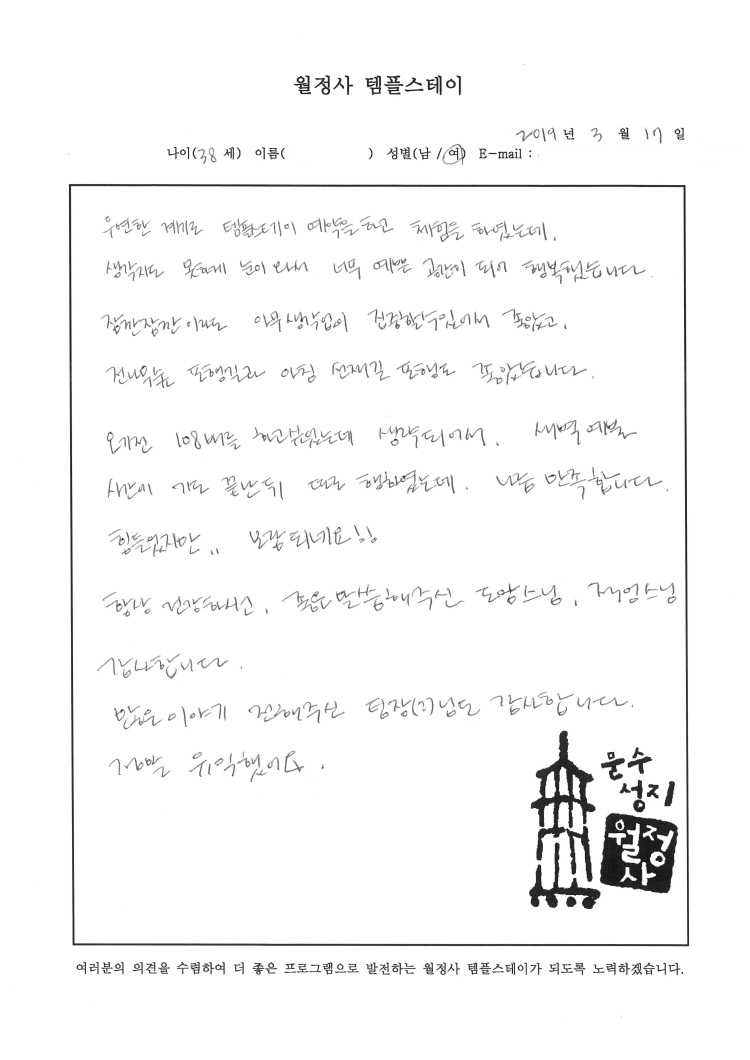 월정사 템플스테이
2019 년 3 월 17 일
나이(38 세) 이름( ) 성별(남 / 여) E-mail :
우연한 계기로 템플스테이 예약을 하고 체험을 하였는데,
생각지도 못하게 눈이 와서 너무 예쁜 공간이 되어 행복했습니다.
잠깐잠깐이라도 아무생각없이 집중할수있어서 좋았고,
전나무숲 포행길과 아침 선재길 포행도 좋았습니다.
오기전 108배를 하고싶었는데 생략되어서, 새벽 예불
시간이 끝난뒤 따로 행하였는데, 나름 만족합니다.
힘들었지만,, 보람되네요!!
항상 건강하시고, 좋은말씀해주신 도암스님,
감사합니다.
많은이야기 전해주신 팀장(?)님도 감사합니다.
정말 유익했어요.
문수
성지
월정
사
여러분의 의견을 수렴하여 더 좋은 프로그램으로 발전하는 월정사 템플스테이가 되도록 노력하겠습니다.